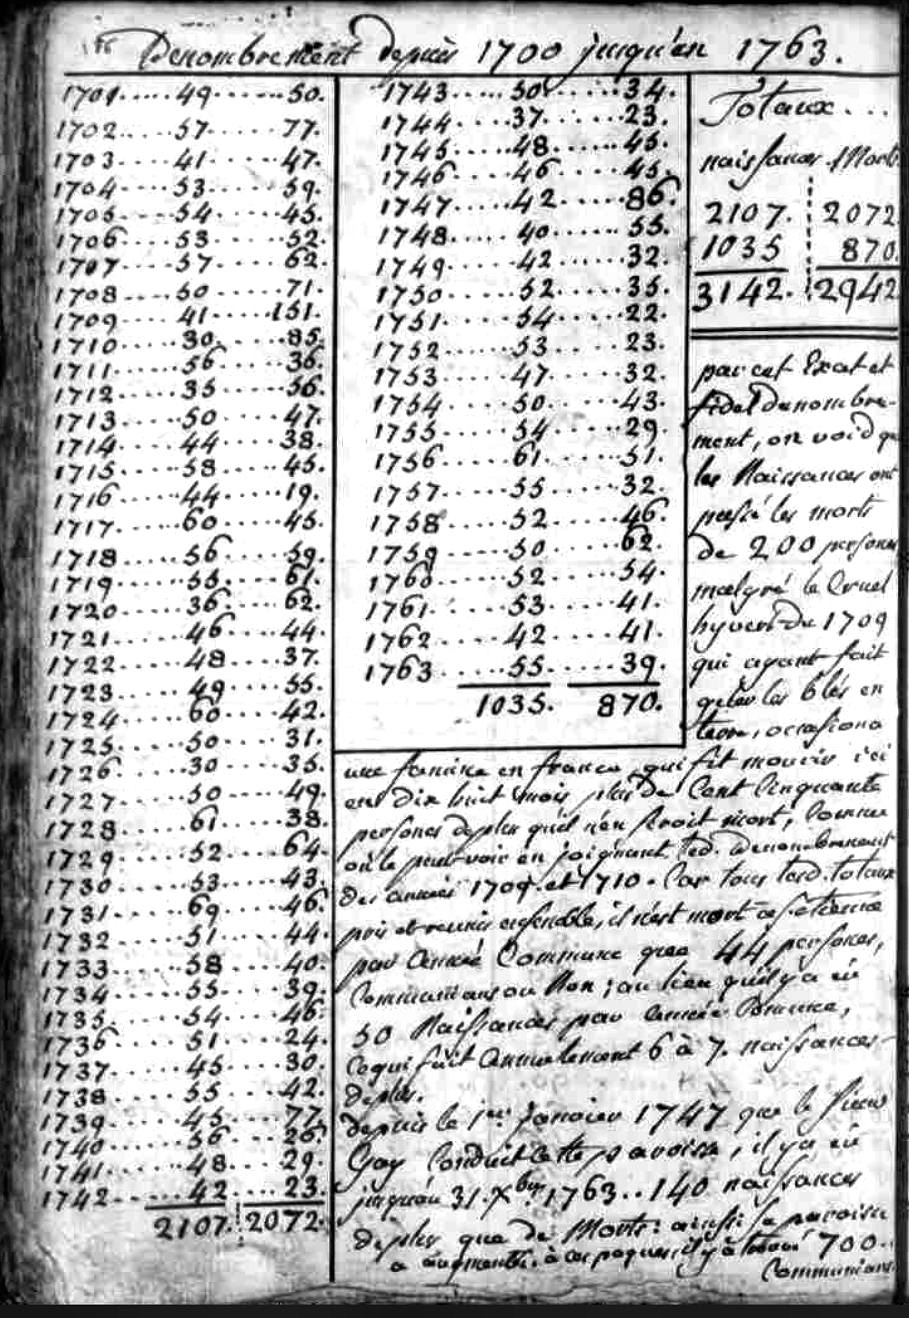 Denombrement depuis 1700 jusqu'en 1763.
1701.....49......50.
1702.....57......77.
1703.....41......47.
1704.....53......59.
1705.....54......45.
1706.....53......52.
1707.....57......62.
1708.....50......71.
1709.....41......151.
1710.....30......85.
1711.....56......36.
1712.....35......56.
1713.....50......47.
1714.....44......38.
1715.....58......45.
1716.....44......19.
1717.....60......45.
1718.....56......59.
1719.....55......61.
1720.....36......62.
1721.....46......44.
1722.....48......37.
1723.....49......55.
1724.....60......42.
1725.....50......31.
1726.....30......35.
1727.....50......49.
1728.....61......38.
1729.....52......64.
1730.....53......43.
1731.....69......46.
1732.....51......44.
1733.....58......40.
1734.....55......39.
1735.....54......46.
1736.....51......24.
1737.....45......30.
1738.....55......42.
1739.....45......77.
1740.....56......26.
1741.....48......29.
1742.....42......23.
2107. 2072.
1743.....50......34.
1744.....37......23.
1745.....48......45.
1746.....46......45.
1747.....42......86.
1748.....40......55.
1749.....42......32.
1750.....52......35.
1751.....54......22.
1752.....53......23.
1753.....47......32.
1754.....50......43.
1755.....54......29.
1756.....61......51.
1757.....55......32.
1758.....52......46.
1759.....50......62.
1760.....52......54.
1761.....53......41.
1762.....42......41.
1763.....55......39.
1035. 870.
Totaux...
naissances Morts
2107. 2072
1035 870.
3142. 2942
par cet Exat et
fidel denombre-
ment, on void que
les Naissances ont
passé les morts
de 200 persones
malgré le Cruel
hyver du 1709
qui ayant fait
geler les blés en
terre, occasiona
une famine en france, qui fit mourir ici
en dix huit mois plus de Cent Cinquante
persones de plus qu'il n'en seroit mort, Comme
on le peut voir en joignant led. denombrement
des années 1709. et 1710. Car tous lesd. totaux
pris et reunis ensemble, il n'est mort a St etienne
par année Commune que 44 persones,
Communians ou Non; au lieu qu'il y a eu
50 Naissances par année Commune,
Ce qui fait annuelement 6 à 7. naissances
de plus.
depuis le 1er Janvier 1747 que le sieur
Gay Conduit Cette paroisse, il y a eu
jusqu'au 31. Xbre 1763..140 naissances
de plus que de Morts: ainsi sa paroisse
a augmenté. à ces paques il y a 700.
Communians.